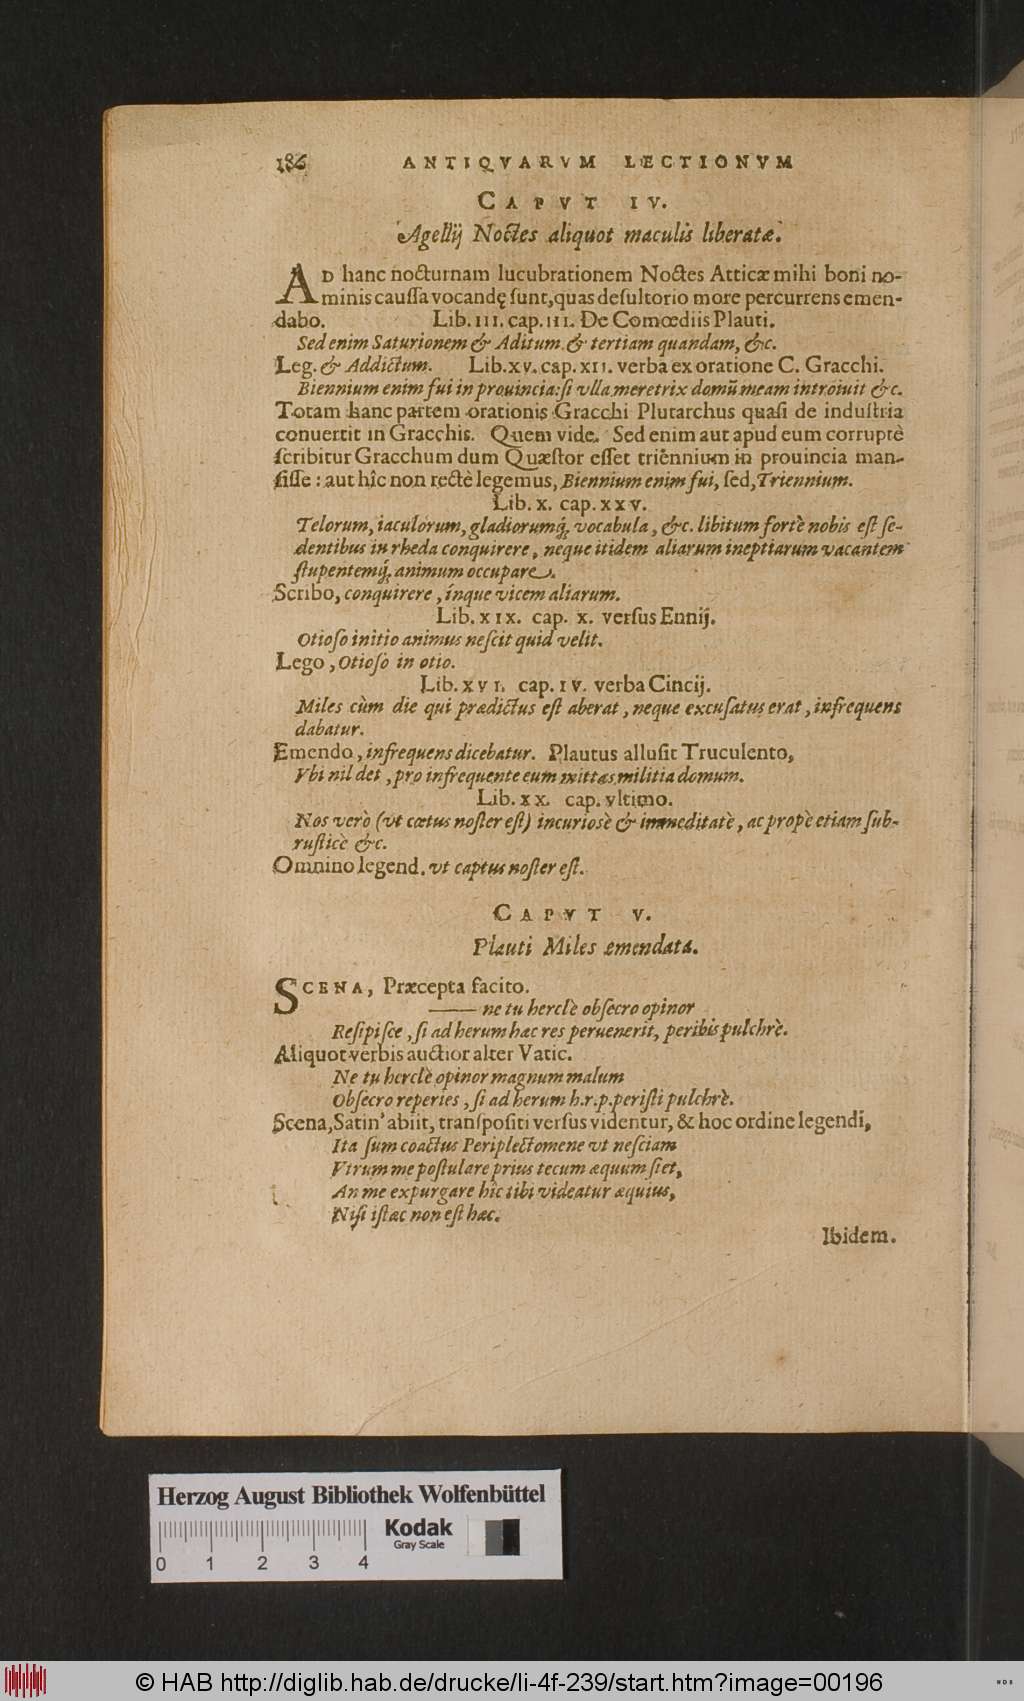 186 ANTIQVARVM LECTIONVM
CAPVT IV.
Agellij Noctes aliquot maculis liberatæ.
AD hanc nocturnam lucubrationem Noctes Atticæ mihi boni no-
minis caussa vocandę sunt, quas desultorio more percurrens emen-
dabo. Lib. III. cap. III. De Comœdiis Plauti.
Sed enim Saturionem & Aditum. & tertiam quandam, &c.
Leg. & Addictum. Lib. XV. cap. XII. verba ex oratione C. Gracchi.
Biennium enim fui in prouincia: si vlla meretrix domũ meam introiuit &c.
Totam hanc partem orationis Gracchi Plutarchus quasi de industria
conuertit in Gracchis. Quem vide. Sed enim aut apud eum corruptè
scribitur Gracchum dum Quæstor esset triennium in prouincia man-
sisse: aut hîc non rectè legemus, Biennium enim fui, sed, Triennium.
Lib. X. cap. XXV.
Telorum, iaculorum, gladiorumq́; vocabula, &c. libitum fortè nobis est se-
dentibus in rheda conquirere, neque itidem aliarum ineptiarum vacantem
stupentemq́; animum occupare.
Scribo, conquirere, inque vicem aliarum.
Lib. XIX. cap. X. versus Ennij.
Otioso initio animus nescit quid velit.
Lego, Otioso in otio.
Lib. XVI. cap. IV. verba Cincij.
Miles cùm die qui prædictus est aberat, neque excusatus erat, infrequens
dabatur.
Emendo, infrequens dicebatur. Plautus allusit Truculento,
Vbi nil det, pro infrequente eum mittas militia domum.
Lib. XX. cap. vltimo.
Nos verò (vt cœtus noster est) incuriosè & immeditatè, ac propè etiam sub-
rusticè &c.
Omnino legend. vt captus noster est.
CAPVT V.
Plauti Miles emendata.
SCENA, Præcepta facito.
—— ne tu herclè obsecro opinor
Resipisce, si ad herum hac res peruenerit, peribis pulchrè.
Aliquot verbis auctior alter Vatic.
Ne tu herclè opinor magnum malum
Obsecro reperies, si ad herum h.r.p. peristi pulchrè.
Scena, Satin' abiit, transpositi versus videntur, & hoc ordine legendi,
Ita sum coactus Periplectomene vt nesciam
Vtrum me postulare prius tecum æquum siet,
An me expurgare hîc tibi videatur æquius,
Nisi istac non est hac.
Ibidem.
Herzog August Bibliothek Wolfenbüttel
Kodak
Gray Scale
0 1 2 3 4
© HAB http://diglib.hab.de/drucke/li-4f-239/start.htm?image=00196